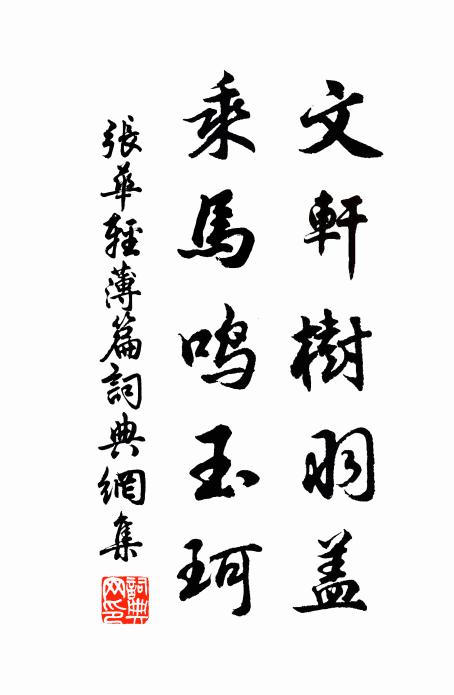 文軒樹羽盖
乘馬鸣玉珂
張華輕薄篇詞典網集
詞典网印